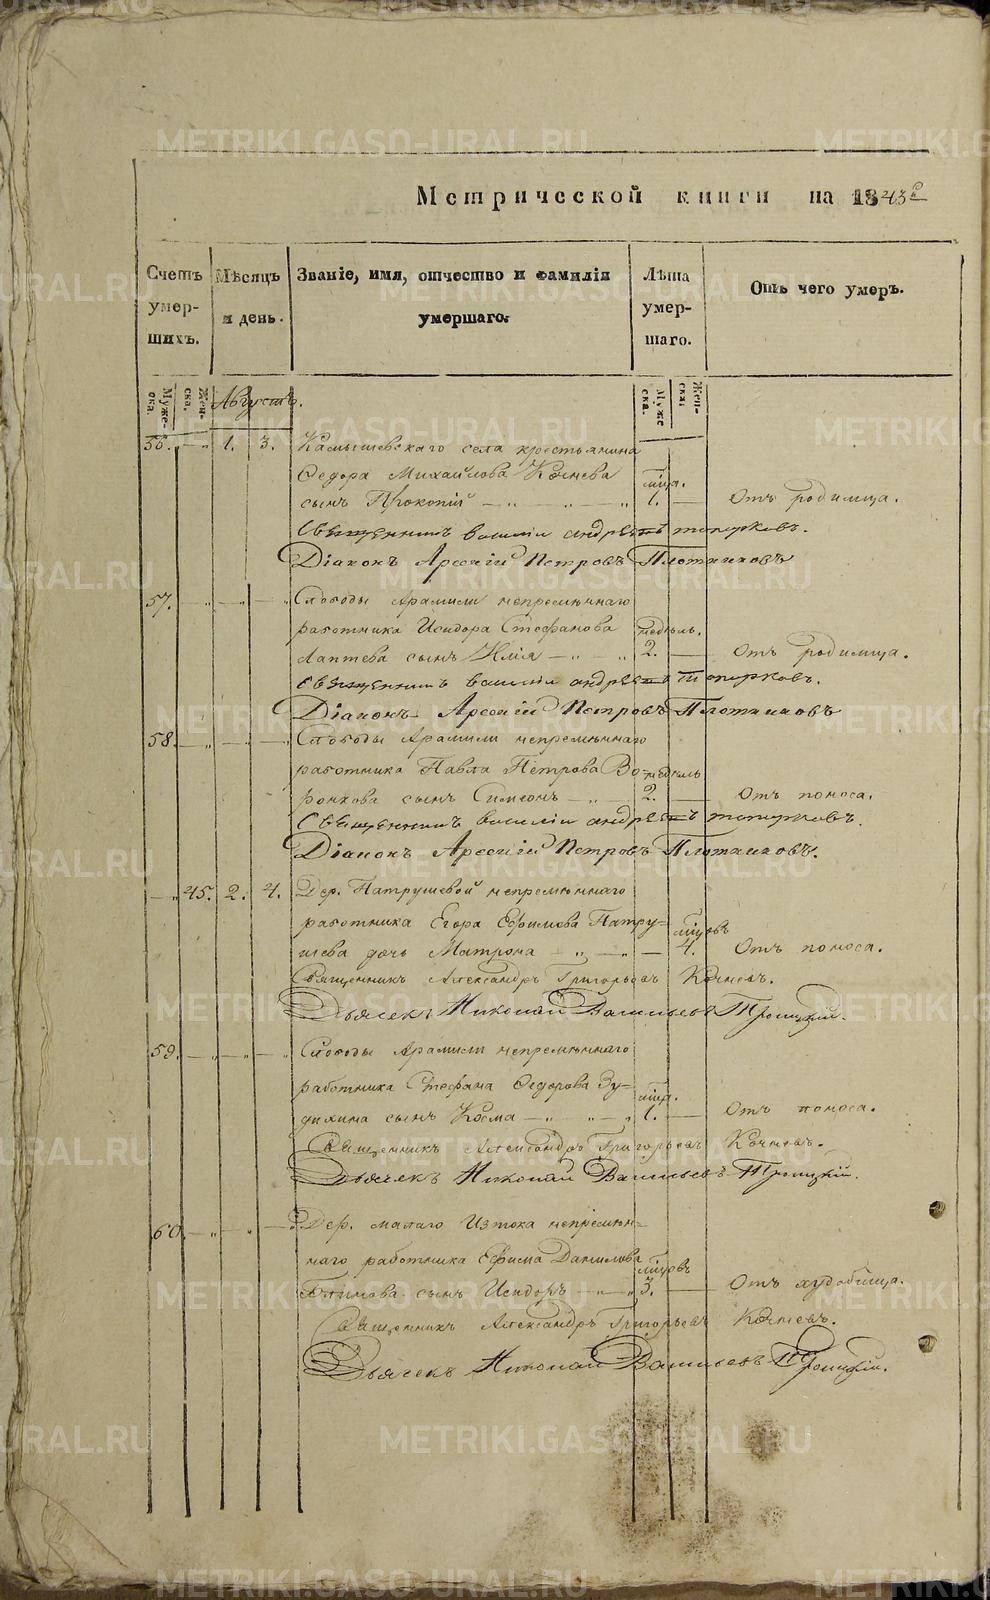 Метрической книги на 1843й
Счетъ умер-шихъ.
Мѣсяцъ и день.
Званіе, имя, отчество и фамилія умершаго.
Лѣта умер-шаго.
Отъ чего умеръ.
Муже-ска. Жен-ска. Августъ. Муже ска. Жен-ска.
56. „ 1. 3. Камышевскаго села крестьянина
Ѳедора Михайлова Кочнева мца.
сынъ Прокопій — „ — „ 1. — Отъ родимца.
Священникъ василій андреевъ топорковъ.
Діаконъ Арсеній Петровъ Плотниковъ
57. — „ — „ Слободы Арамили непремѣннаго
работника Исидора Стефанова недѣль.
Лаптева сынъ Илія — „ — „ 2. — Отъ родимца.
священникъ василій андреевъ топорковъ.
Діаконъ Арсеній Петровъ Плотниковъ
58. — „ — „ Слободы Арамили непремѣннаго
работника Павла Петрова Во- недѣль
ронхова сынъ Симеонъ — „ — 2. — Отъ поноса.
Священникъ василій андреевъ топорковъ.
Діаконъ Арсеній Петровъ Плотниковъ.
— „ 45. 2. 4. Дер. Патрушевой непремѣннаго
работника Егора Ефимова Патру= мцовъ
шева дочь Матрона — „ — „ — 4. Отъ поноса.
Священникъ Александръ Григорьевъ Кочневъ.
Дьячекъ Николай Васильевъ Троицкій.
59. — „ — „ Слободы Арамили непремѣннаго
работника Стефана Ѳедорова Зу= мца.
дихина сынъ Косма — „ — „ 1. — Отъ поноса.
Священникъ Александръ Григорьевъ Кочневъ.
Дьячекъ Николай Васильевъ Троицкій.
60. — „ — „ Дер. малаго Истока непремѣн=
наго работника Ефима Данилова мцовъ
сынъ Исидоръ — „ — „ 3. — Отъ худобища.
Священникъ Александръ Григорьевъ Кочневъ.
Дьячекъ Николай Васильевъ Троицкій.
METRIKI.GASO-URAL.RU